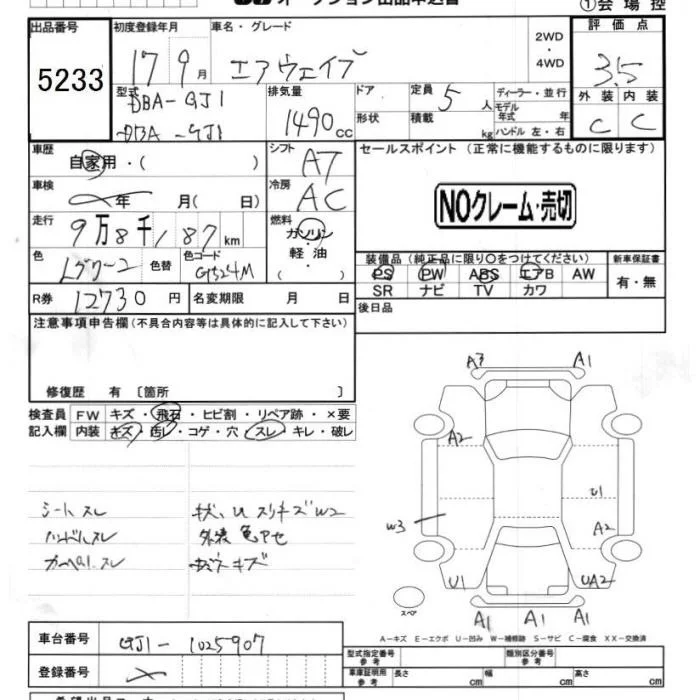 オークション出品申込書
①会場控
出品番号
5233
初度登録年月
17 9月
車名・グレード
エアウェイブ
2WD
・
4WD
評価点
3.5
外装 内装
C C
型式
DBA-GJ1
DBA-GJ1
排気量
1490cc
ドア
形状
定員 5人
積載 kg
ディーラー・並行
モデル年式 年
ハンドル 左・右
車歴
自家用・( )
シフト
AT
車検
年 月( 日)
冷房
AC
走行
9万8千187km
燃料
ガソリン
軽・油
( )
色
色替
色コード
G524M
R券
12730円
名変期限 月 日
セールスポイント(正常に機能するものに限ります)
NOクレーム・売切
装備品(純正品に限り○をつけてください)
PS PW ABS エアB AW
SR ナビ TV カワ
新車保証書
有・無
後日品
注意事項申告欄(不具合内容等は具体的に記入して下さい)
修復歴 有〔箇所 〕
検査員記入欄
FW キズ・飛石・ヒビ割・リペア跡・×要
内装 キズ・汚レ・コゲ・穴・スレ・キレ・破レ
シートスレ
ハンドルスレ
外装 色アセ
A3 A1
A2
U1
W3
A2
U1 UA2
A1 A1 A1
スペア
A-キズ E-エクボ U-凹み W-補修跡 S-サビ C-腐食 XX-交換済
車台番号
GJ1-1025907
登録番号
型式指定番号
参考
類別区分番号
参考
車庫証明用
参考
長さ cm 幅 cm 高さ cm